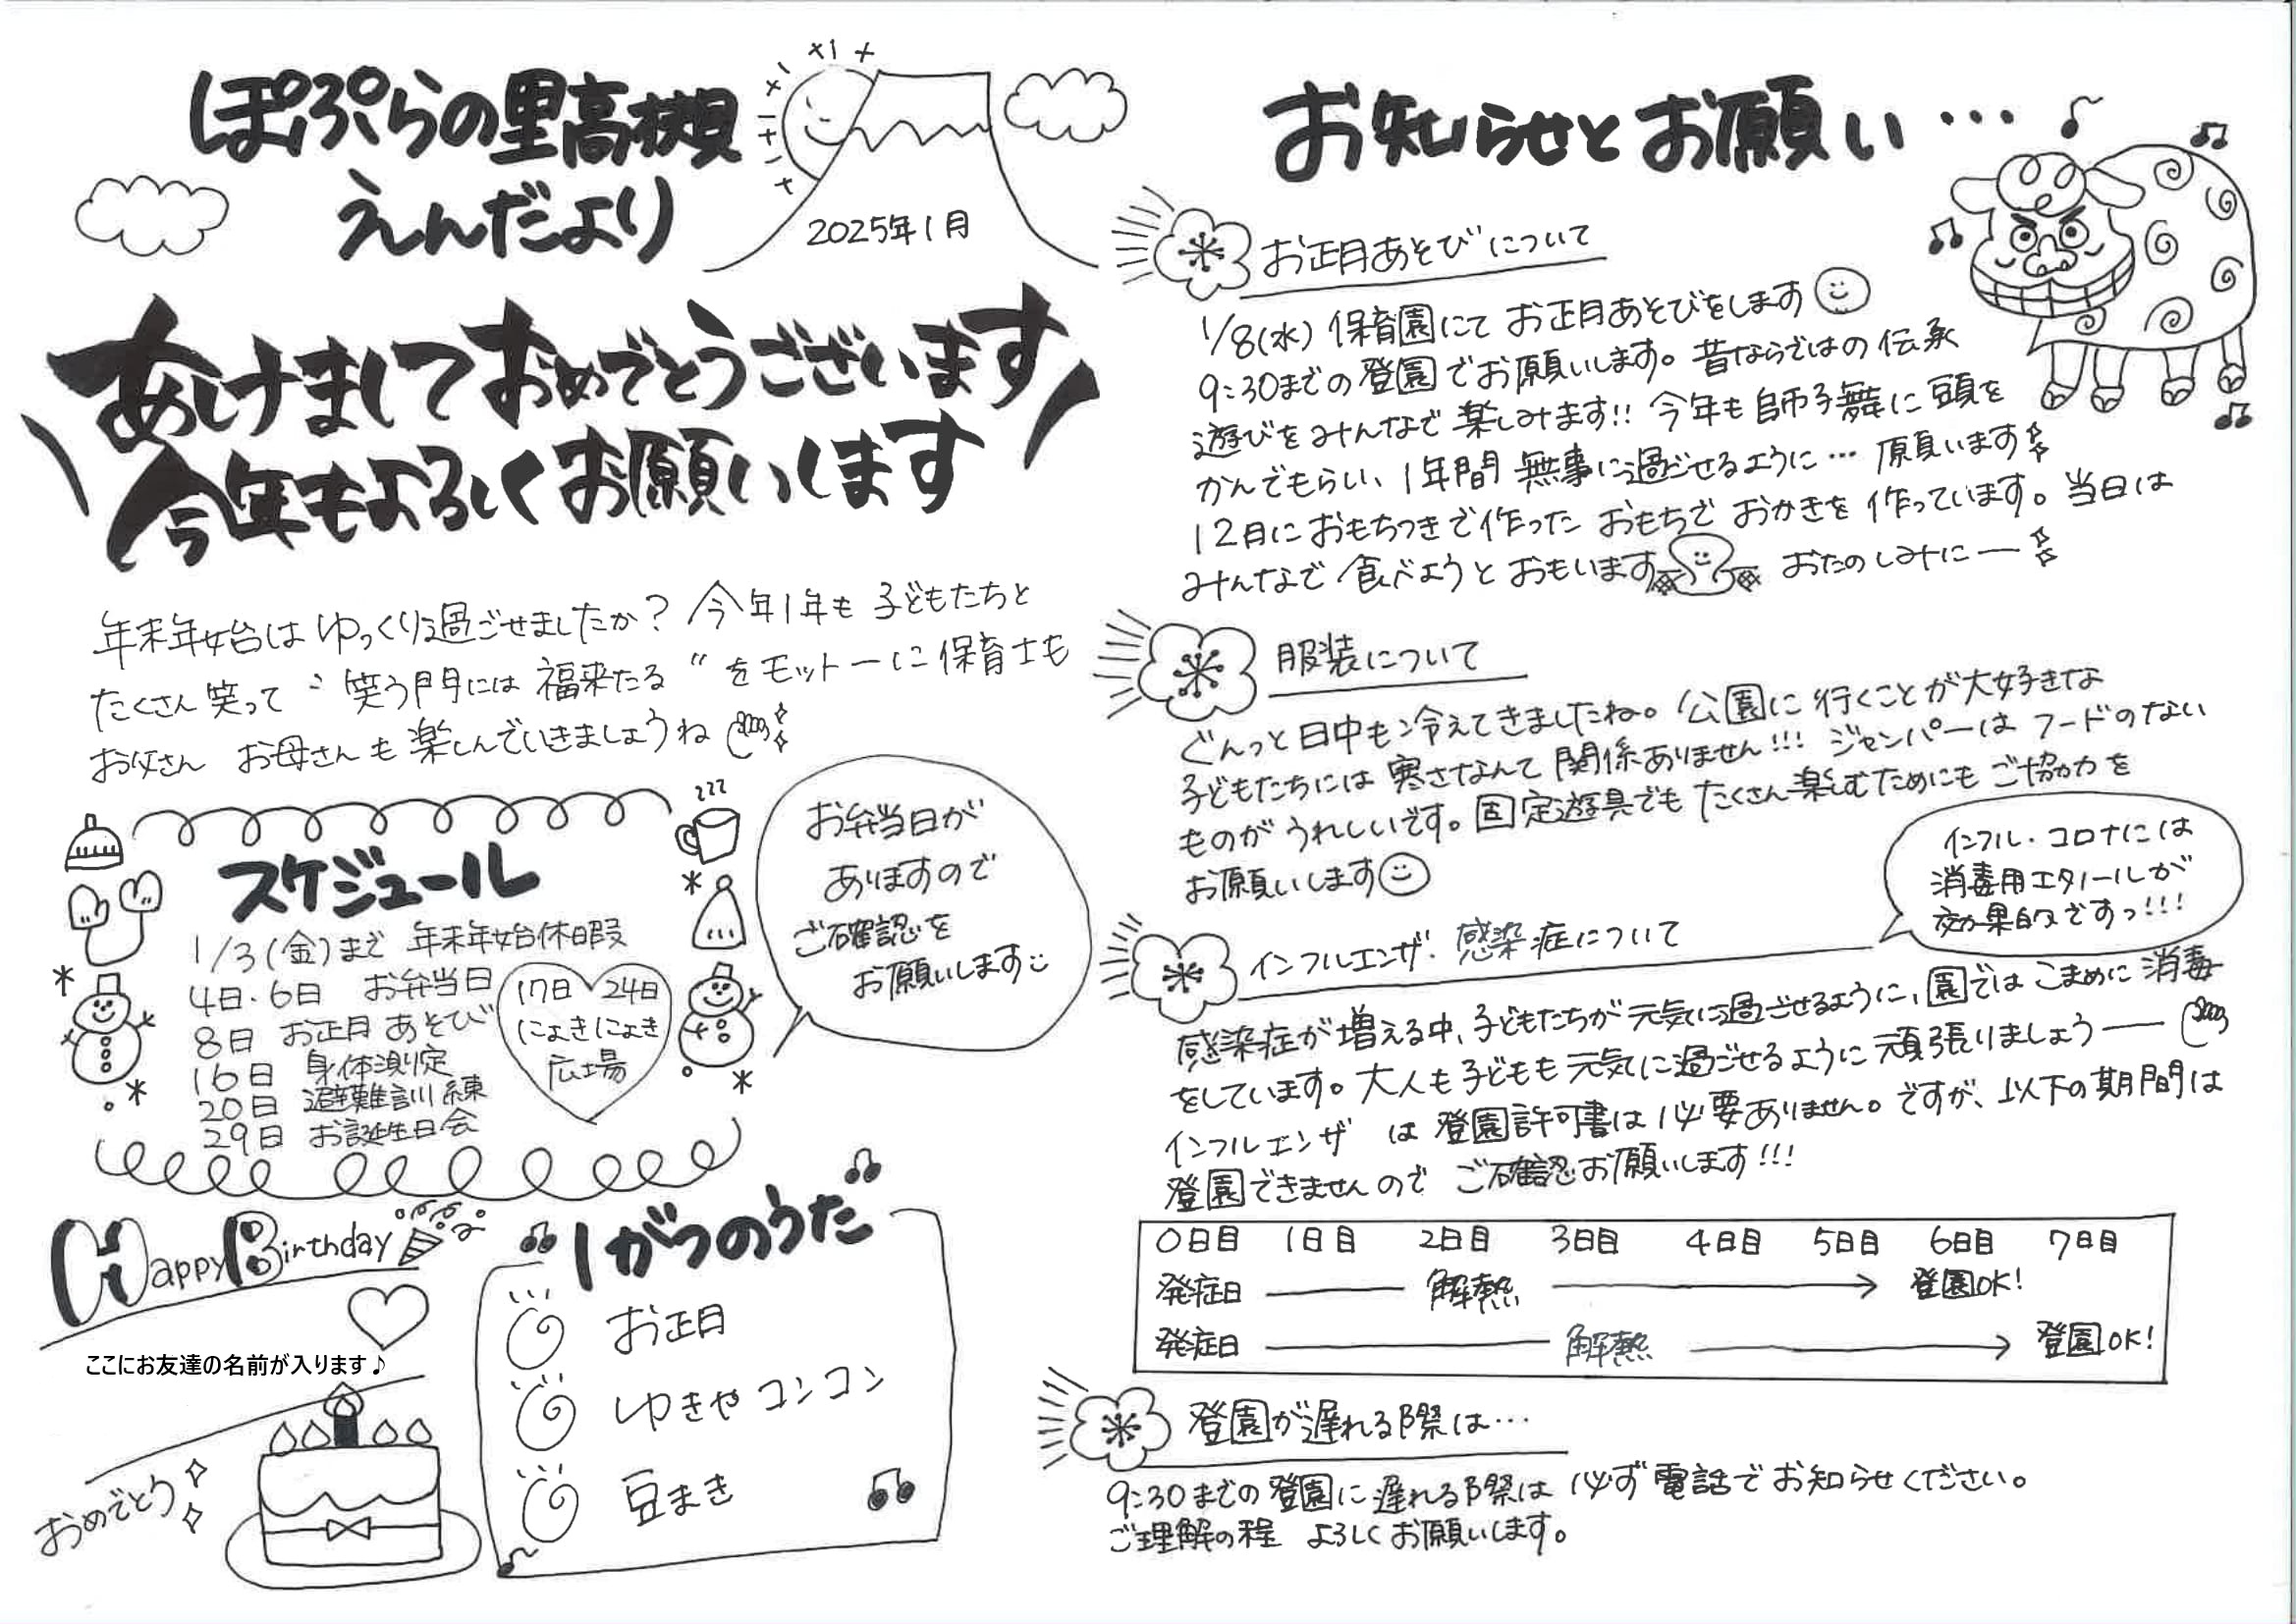 ぽぷらの里高槻
えんだより
2025年1月
あけましておめでとうございます
今年もよろしくお願いします
年末年始はゆっくり過ごせましたか？今年1年も子どもたちと
たくさん笑って〝笑う門には福来たる〟をモットーに保育士も
お父さん お母さんも楽しんでいきましょうね
スケジュール
1/3(金)まで 年末年始休暇
4日・6日 お弁当日
8日 お正月あそび
16日 身体測定
20日 避難訓練
29日 お誕生日会
17日 24日
にょきにょき
広場
お弁当日が
ありますので
ご確認を
お願いします
Happy Birthday
ここにお友達の名前が入ります♪
おめでとう
1がつのうた
お正月
ゆきやコンコン
豆まき
お知らせとお願い…
お正月あそびについて
1/8(水) 保育園にてお正月あそびをします
9:30までの登園でお願いします。昔ならではの伝承
遊びをみんなで楽しみます!! 今年も師子舞に頭を
かんでもらい、1年間無事に過ごせるように…願います
12月におもちつきで作ったおもちでおかきを作っています。当日は
みんなで食べようとおもいます おたのしみにー
服装について
ぐんっと日中も冷えてきましたね。公園に行くことが大好きな
子どもたちには寒さなんて関係ありません!!! ジャンパーはフードのない
ものがうれしいです。固定遊具でもたくさん楽しむためにもご協力を
お願いします
インフルエンザ・感染症について
インフル・コロナには
消毒用エタノールが
効果的ですっ!!!
感染症が増える中、子どもたちが元気に過ごせるように、園ではこまめに消毒
をしています。大人も子どもも元気に過ごせるように頑張りましょうー
インフルエンザ は登園許可書は必要ありません。ですが、以下の期間は
登園できませんので ご確認お願いします!!!
0日目 1日目 2日目 3日目 4日目 5日目 6日目 7日目
発症日 解熱 登園OK!
発症日 解熱 登園OK!
登園が遅れる際は…
9:30までの登園に遅れる際は必ず電話でお知らせください。
ご理解の程 よろしくお願いします。